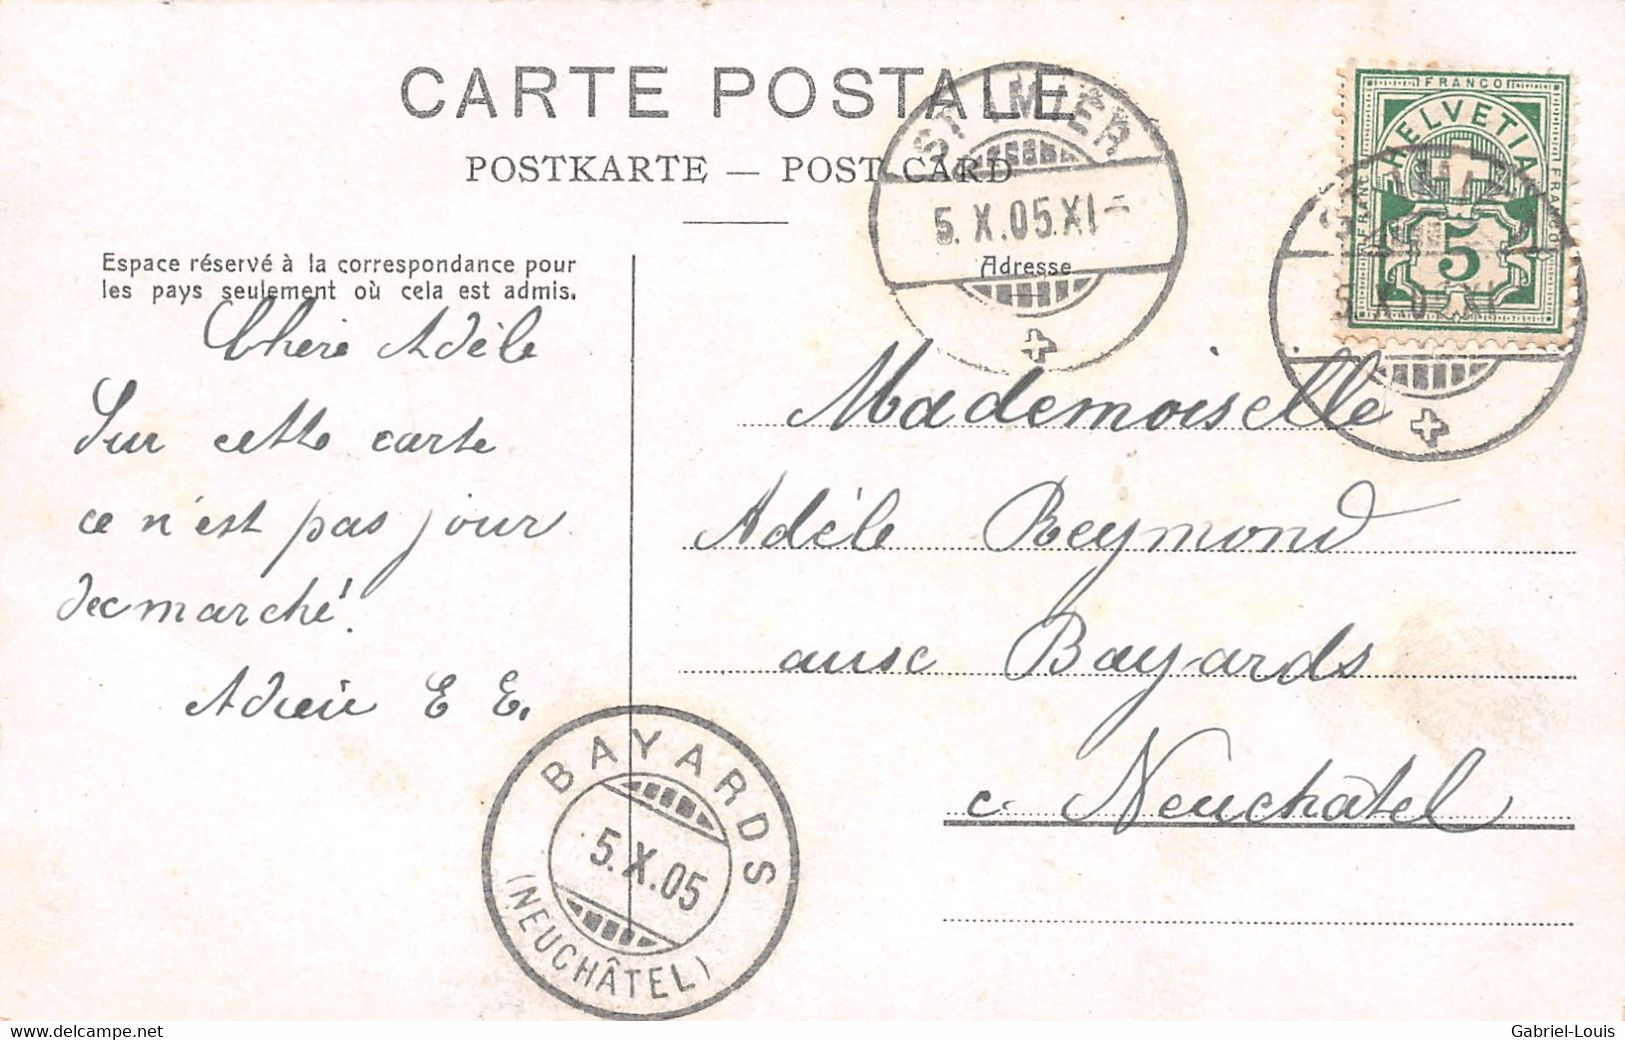 CARTE POSTALE
POSTKARTE — POST CARD
Espace réservé à la correspondance pour
les pays seulement où cela est admis.
Adresse
ST. IMIER
5.X.05.XI-
FRANCO
HELVETIA
FRANCO
FRANCO
5
Chère Adèle
Sur cette carte
ce n'est pas jour
de marché!
E E.
Mademoiselle
Adèle Reymond
aux Bayards
c. Neuchâtel
BAYARDS
5.X.05
(NEUCHÂTEL)
www.delcampe.net
Gabriel-Louis